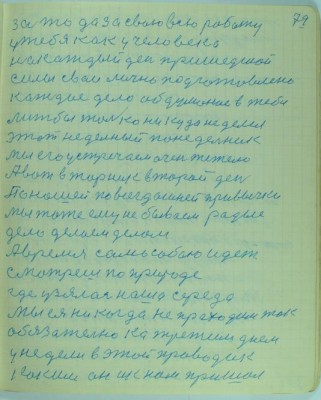 79
за то да за свою всю работу
у тебя как у человека
на каждый ден пришедшой
силы сваи лично подготовлено
каждое дело обдуманое в тебя
лиш бы толко никуда не делся
этот неделный понеделник
мы его устречаем очен тежело
А вот вторник второй ден
По нашей повсегдашней привычки
мы тоже ему не бываем радые
дело делаем делом
А время само собою идет
смотреш по природе
где узялас наша среда
мы ея никогда не праходим так
обязателно как третим днем
у недели в этой проводик
таким он ик нам пришол